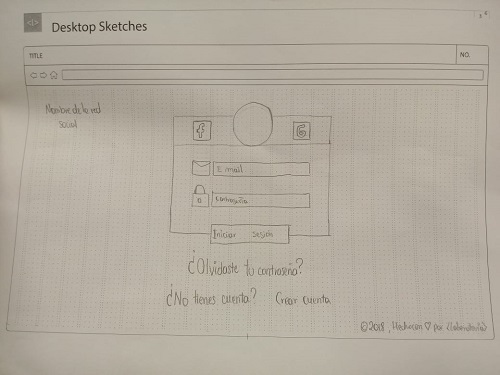 </>
Desktop Sketches
TITLE
NO.
Nombre de la red
social
f
G
E-mail
contraseña
Iniciar sesión
¿Olvidaste tu contraseña?
¿No tienes cuenta? Crear cuenta
©2018, Hecho con ♡ por